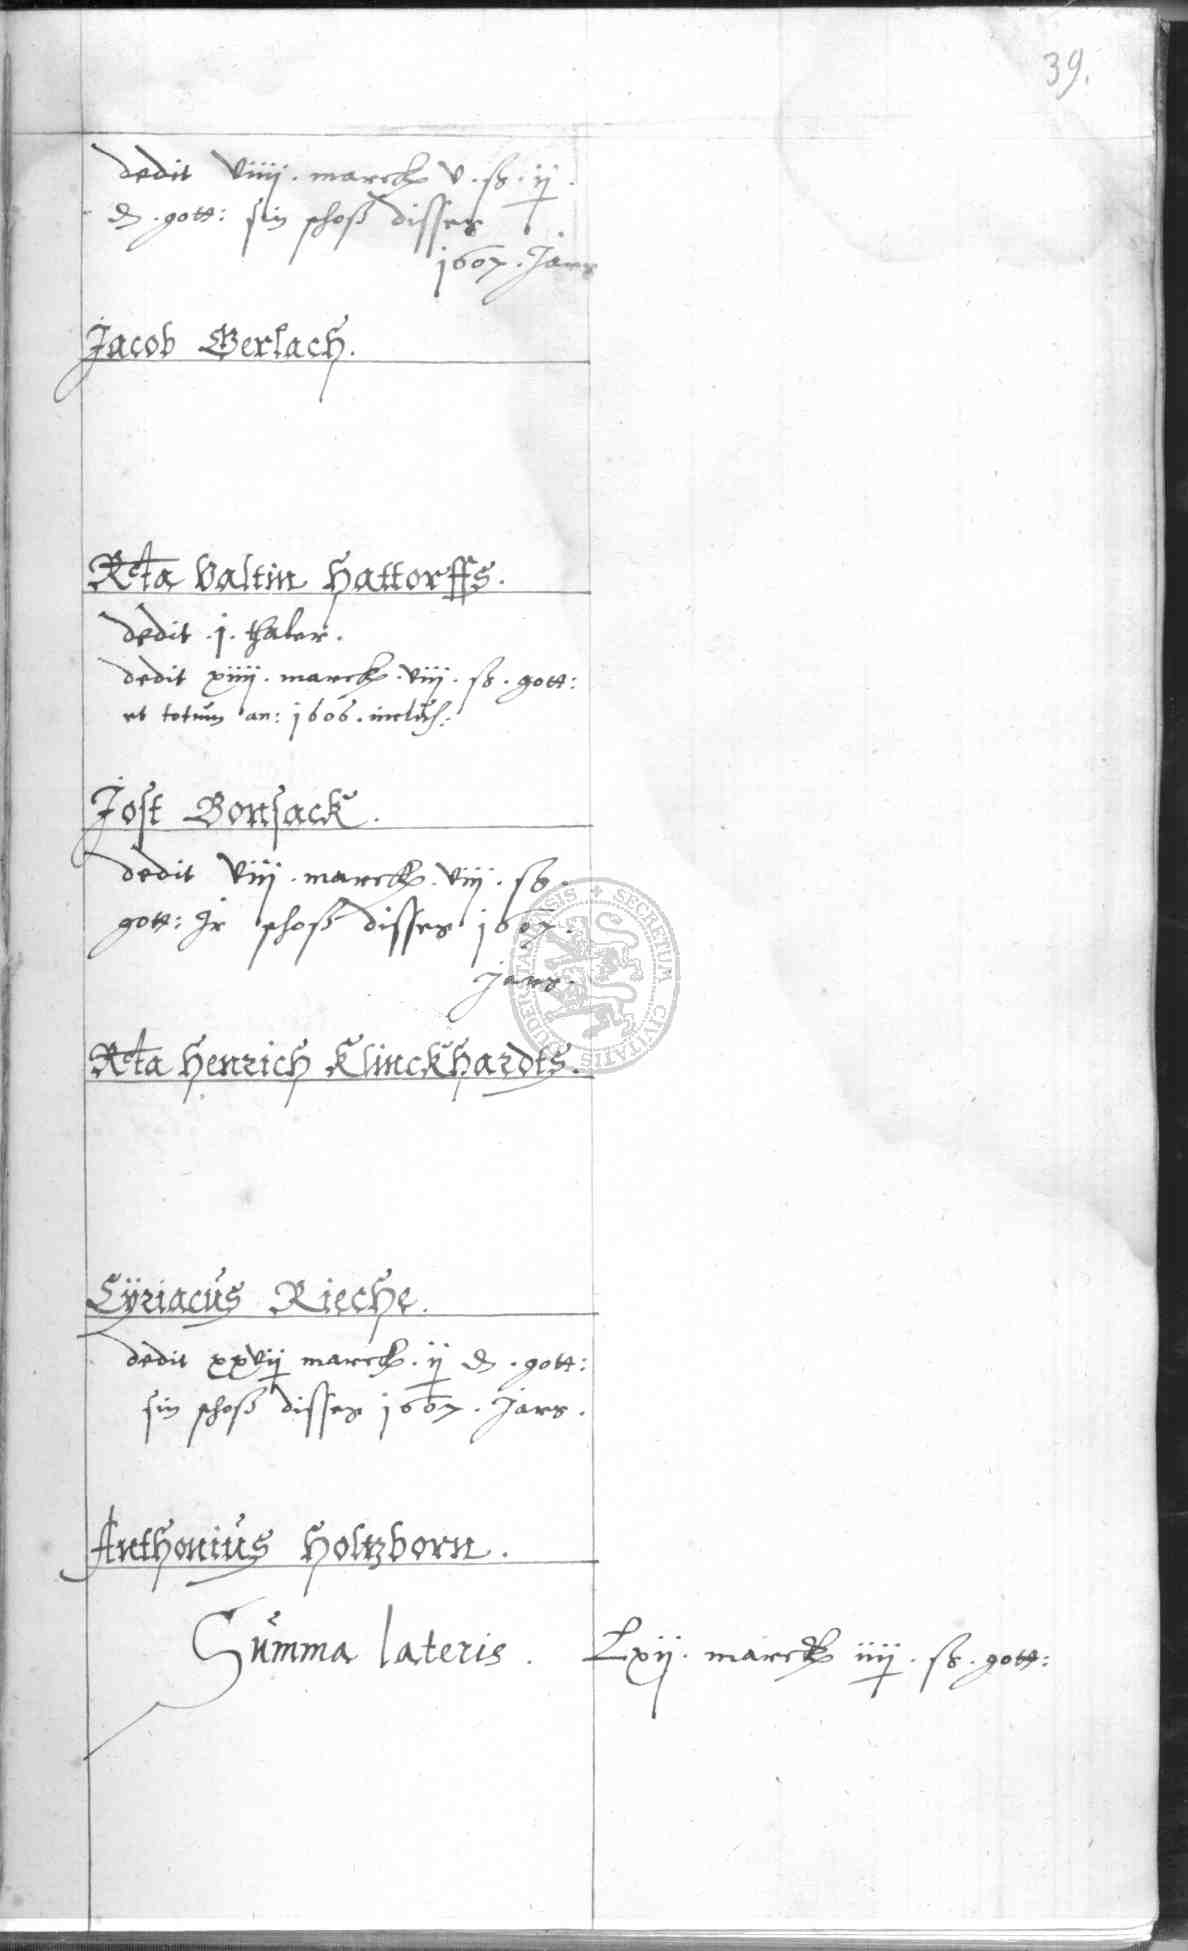 39.
dedit viiij. marck v. ß. ij
₰. gott: sin schoß disses
1607. Jars
Jacob Gerlach.
Rcta Valtin Hattorffs.
dedit .j. thaler.
dedit xiiij. marck. viij. ß. gott:
et totum an: 1606. inclus.
Jost Bonsack.
dedit viij. marck. viij. ß.
gott: Ir schoß disses 1607.
Jars.
Rcta Henrich Klinckhardts.
Cÿriacus Rieche.
dedit xxvij marck. ij ₰. gott:
sin schoß disses 1607. Jars.
Anthonius Holtzborn.
Summa lateris. Lxij. marck iiij. ß. gott:
SECRETUM CIVITATIS DUDERSTADENSIS